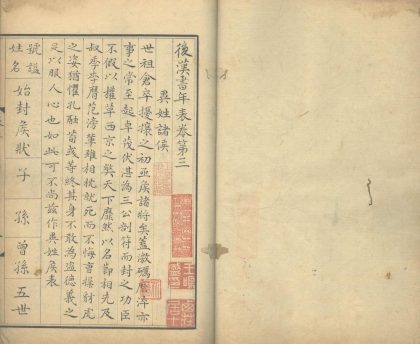 後漢書年表卷第三
異姓諸侯
世祖倉卒擾攘之初亟侯諸將矣蓋激礪磨淬亦
事之常至起卓茂伏湛為三公剖符而封之功臣
不假以權草西京之獘天下靡然以名節相先及
叔季李膺范滂輩雖相枕就死而不悔曹操豺虎
之姿猶懼孔融荀彧等終其身不敢為盜德義之
足以服人心也如此可不尚哉作異姓侯表
號諡
姓名
始封侯狀
子
孫
曾孫
五世